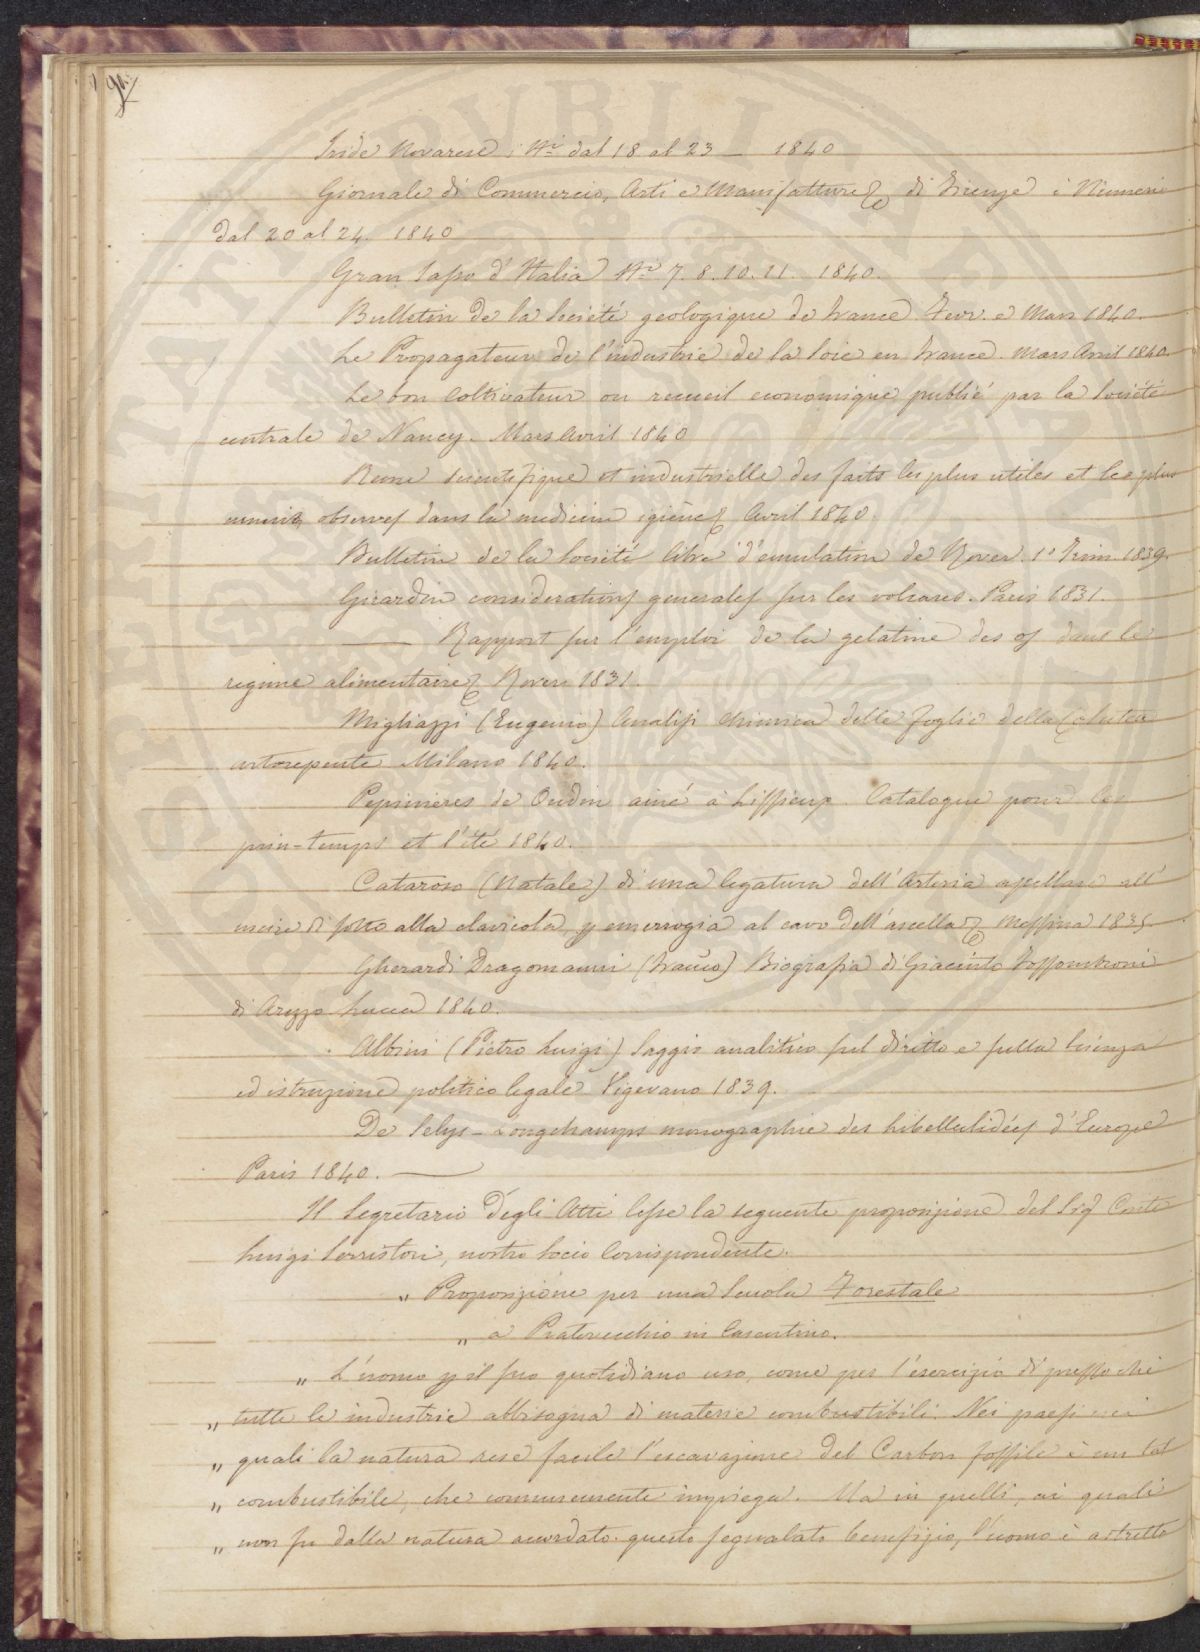 Iride Novarese: Nri dal 18 al 23 — 1840
Giornale di Commercio, Arti e Manifatture & di Firenze i Numeri
dal 20 al 24. 1840
Gran Sasso d'Italia Nri 7. 8. 10. 11. 1840.
Bulletin de la Societé geologique de france. Fevr. e Mars 1840.
Le Propagateur de l'industrie de la Soie en france. Mars Avril 1840.
Le bon Coltivateur ou recueil economique publié par la Societé
centrale de Nancy. Mars Avril 1840
Revue scientifique et industrielle des faits les plus utiles et les plus
observes dans la medicine igiène & Avril 1840.
Bulletin de la Societé libre d'emulation de Roven. 1° Trim. 1839.
Girardin considerations generales sur les volcans. Paris 1831.
—— Rapport sur l'emploi de la gelatine des os dans le
regime alimentaire & Roven 1831.
Migliazzi (Eugenio) Analisi chimica delle foglie della
Milano 1840.
Pepinieres de Oudin ainé à Lissieux. Catalogue pour les
prin-temps et l'été 1840.
Cataroso (Natale) di una legatura dell'Arteria apellare all'
uscire di sotto alla clavicola, p emorrogia al cavo dell'ascella & Messina 1835.
Gherardi Dragomanni (franco) Biografia di Giacinto Fossombroni
di Arezzo Lucca 1840.
Albini (Pietro Luigi) Saggio analitico sul diritto e sulla scienza
ed istruzione politico legale Vigevano 1839.
De Selys-Longchamps monographie des Libellulidées d'Europe
Paris 1840. ——
Il Segretario degli Atti lesse la seguente proposizione del Sig Conte
Luigi Serristori, nostro Socio Corrispondente.
„ Proposizione per una Scuola Forestale
„ a Pratovecchio in Casentino.
„ L'uomo p il suo quotidiano uso, come per l'esercizio di presso che
„ tutte le industrie abbisogna di materie combustibili. Nei paesi nei
„ quali la natura rese facile l'escavazione del Carbon fossile è un tal
„ combustibile, che comunemente impiega. Ma in quelli, ai quali
„ non fu dalla natura accordato questo segnalato benefizio, l'uomo è astretto